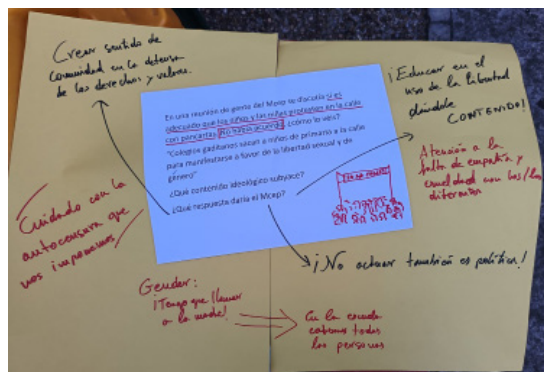 Crear sentido de
comunidad en la defensa
de los derechos y valores.
En una reunión de gente del Mcep se discutía si es
adecuado que los niños y las niñas protesten en la calle
con pancartas. No había acuerdo, ¿cómo lo veis?
"Colegios gaditanos sacan a niños de primaria a la calle
para manifestarse a favor de la libertad sexual y de
género"
¿Qué contenido ideológico subyace?
¿Qué respuesta daría el Mcep?
¡Educar en el
uso de la libertad
dándole
CONTENIDO!
Atención a la
falta de empatía y
crueldad con los/las
diferentes
Cuidado con la
autocensura que
nos imponemos
¡No actuar también es política!
Gender:
¡Tengo que llamar
a la madre!
En la escuela
cabemos todas
las personas